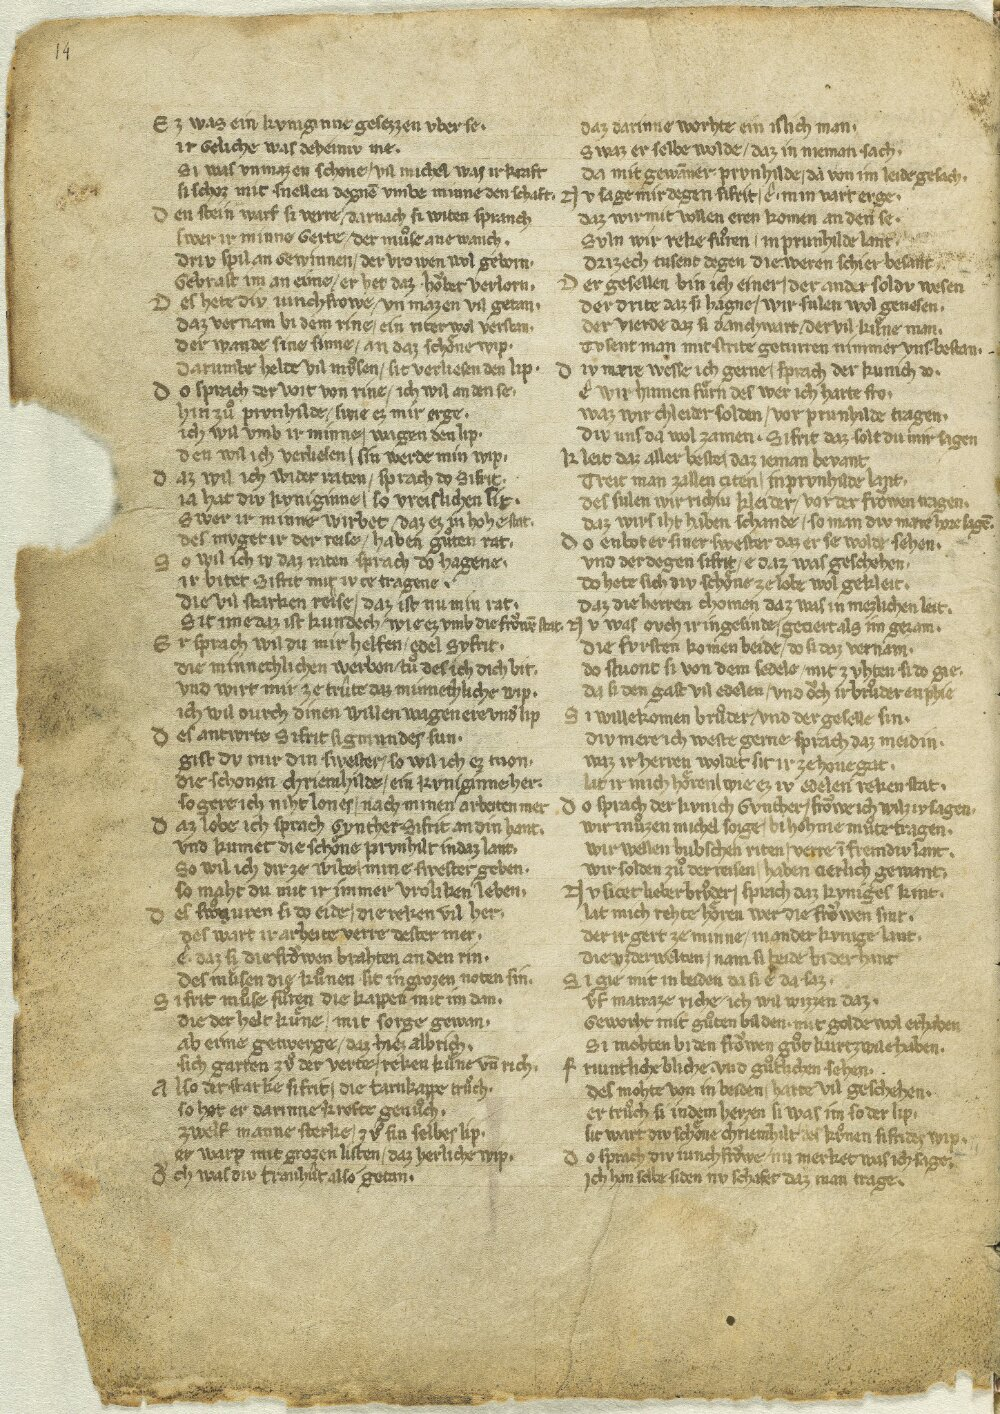 14
E z was ein kyniginne gesezzen vber se.
ir geliche was deheiniv me.
Si was vnmazen schone / vil michel was ir kraft
si schoz mit snellen degnē vmbe minne den schaft.
D en stein warf si verre / dar nach si witen spranch
swer ir minne gerte / der mv̊se ane wanch.
driv spil an gewinnen / der vrowen wol geborn.
Gebrast im an eime / er het daz hŏbet verlorn.
D es hete div iunchfrowe / vn mazen vil getan.
daz vernam bi dem rine / ein riter wol verstan.
der wande sine sinne / an daz schŏne wip.
darumbe helde vil mv̊sen / sit verliesen den lip.
D o sprach der voit von rine / ich wil an den se.
hin zů prvnhilde / swie ez mir erge.
ich wil vmb ir minne / wagen den lip.
den wil ich verliesen / sin werde min wip.
D az wil ich wider raten / sprach do Sifrit.
ia hat div kyniginne / so vreislichen sit.
Swer ir minne wirbet / daz ez in hohe stat.
des mvget ir der reise / haben gůten rat.
S o wil ich iv daz raten sprach do hagene.
ir bitet Sifrit mit iv ce tragene.
die vil starken reise / daz ist nu min rat.
Sit ime daz ist kundech / wie ez vmb die frŏwē stat.
E r sprach wil du mir helfen / edel Syfrit.
die minnechlichen werben / tů des ich dich bit.
vnd wirt mir ze trûte daz minnechliche wip.
ich wil durch dinen willen wagen ere vnd lip
D es antwrte Sifrit sigmundes sun.
gist dv mir din swester / so wil ich ez tuon.
die schonen chriemhilde / ein kyniginne her.
so gere ich niht lones / nach minen arbeiten mer
D az lobe ich sprach Gvnther Sifrit an din hant.
vnd kumet die schŏne prvnhilt in daz lant.
So wil ich dir ze wibe / mine swester geben.
so maht du mit ir immer vroliken leben.
D es swůren si do eide / die reken vil her.
des wart ir arbeite verre dester mer.
E daz si die frŏwen brahten an den rin.
des mv̊sen die kv̊nen sit in grozen noten sin.
S ifrit mv̊se fv̊ren die kappen mit im dan.
die der helt kv̊ne / mit sorge gewan.
ab eime getwerge / daz hiez albrich.
sich garten zv̊ der verte / reken kv̊ne vn̄ rich.
A lso der starke sifrit / die tarnkappe trůch.
so het er darinne krefte genůch.
zwelf manne sterke / zv̊ sin selbes lip.
er warp mit grozen listen / daz herliche wip.
O ch was div tranhut also getan.
daz darinne worhte ein islich man.
Swaz er selbe wolde / daz in nieman sach.
Da mit gewan er prvnhilde / da von im leide gesach.
N v sage mir degen sifrit / E min vart erge.
daz wir mit vollen eren komen an den se.
Svln wir reke fv̊ren / in prunhilde lant.
drizech tusent degen die weren schier besant
D er gesellen bin ich einer / der ander soldv wesen
der drite daz si hagne / wir sulen wol genesen.
der vierde daz si danchwart / der vil kv̊ne man.
Tvsent man mit strite geturren nimmer vns bestan.
D iv mere wesse ich gerne / sprach der kunich do.
E wir hinnen fv̊rn des wer ich harte fro.
waz wir chleider solden / vor prunhilde tragen.
div uns da wol zamen. Sifrit daz solt du mir sagen
K leit daz aller beste / daz ieman bevant
Treit man zallen citen / in prvnhilde lant.
des sulen wir richiu kleider / vor der frŏwen tragen.
daz wirs iht haben schande / so man div mere hore sagē.
D o enbot er siner swester daz er se wolde sehen.
vnd der degen sifrit / e daz was geschehen.
do hete sich div schŏne ze lobe wol gekleit.
daz die herren chomen daz was in mezlichen leit.
N v was ovch ir ingesinde / geziert als im gezam.
die fvrsten komen beide / do si daz vernam.
do stuont si von dem sedele / mit zvhten si do gie.
da si den gast vil edelen / vnd ŏch ir brůder enphie
S i willekomen brůder / vnd der geselle sin.
div mere ich weste gerne sprach daz meidin.
waz ir herren woldet sit ir ze hove gat.
lat ir mich hŏren / wie ez iv edelen reken stat.
D o sprach der kvnich Gvnther / frŏwe ich wilz iv sagen.
wir mv̊zen michel sorge / bi hohme mv̊te tragen.
wir wellen hubschen riten / verre ī fremdiv lant.
wir solden zv̊ der reisen / haben cierlich gewant.
N v sicet lieber brůder / sprach daz kyniges kint.
lat mich rehte hŏren wer die frŏwen sint.
der ir gert ze minne / in ander kvnige lant.
die vz derwelten / nam si beide bi der hant
S i gie mit in beiden da si e da saz.
vf matraze riche ich wil wizzen daz.
Geworht mit gůten bilden. mit golde wol erhaben
Si mohten bi den frŏwen gůt kurtzwile haben.
F riuntliche bliche. vnd gůtlichen sehen.
des mohte von in beiden / harte vil geschehen.
er trůch si in dem herzen si was im so der lip.
sit wart div schŏne chriemhilt des kv̊nen sifrides wip.
D o sprach div iunchfrŏwe nu merket was ich sage.
Ich han selbe siden nv schaffet daz man trage.